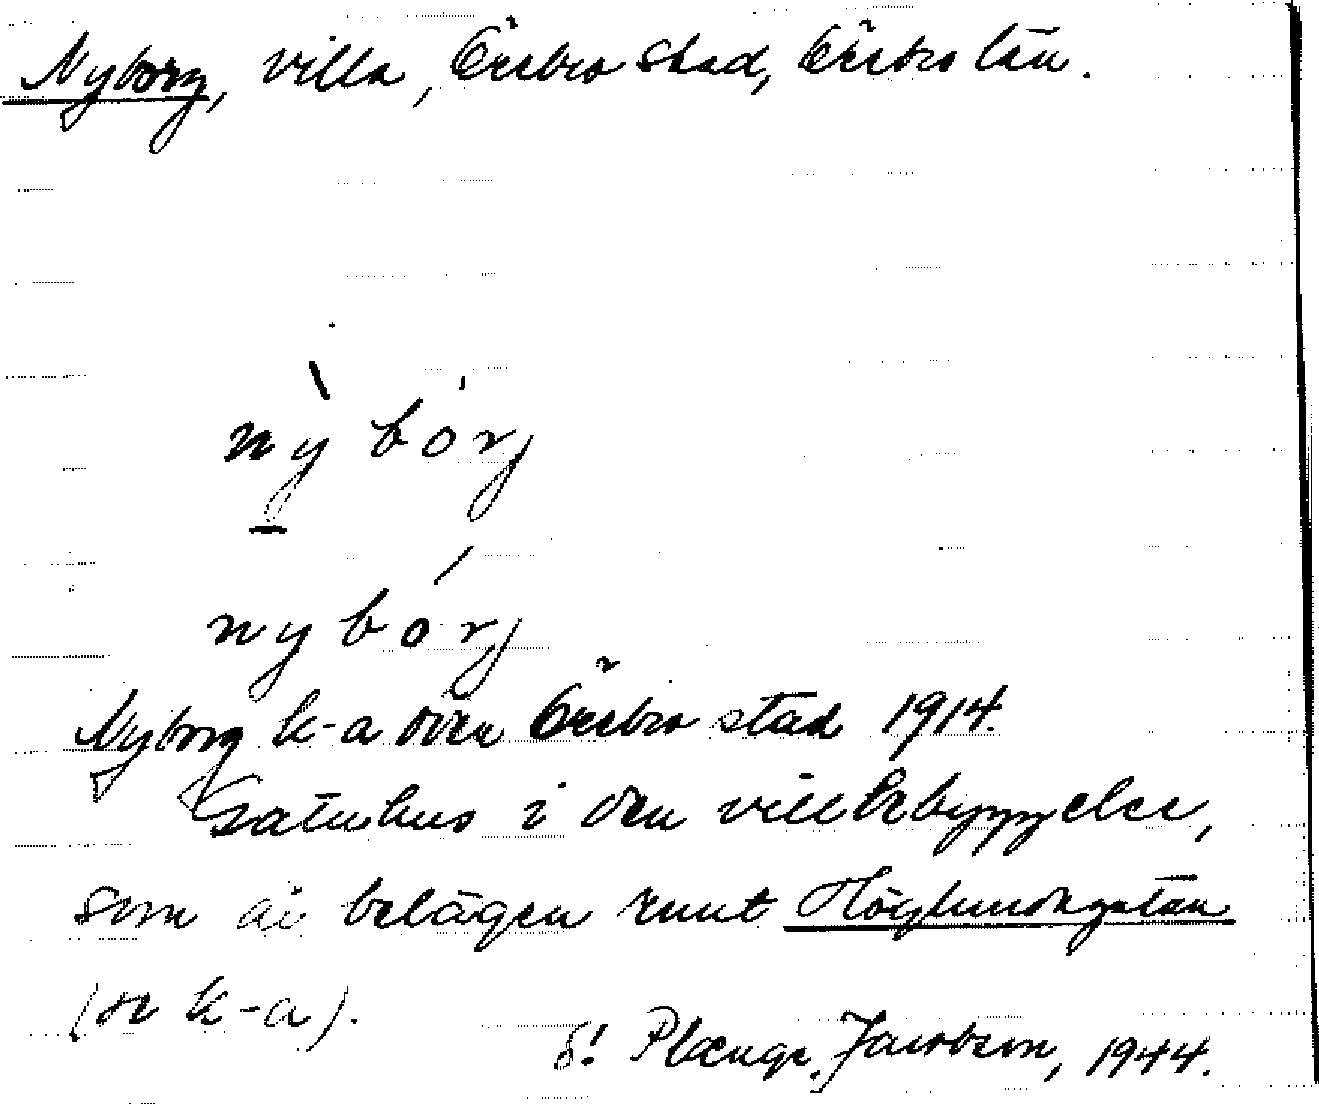 Nyborg, villa, Örebro stad, Örebro län.
nẏ bȯrj
ny bórj
Nyborg k-a över Örebro stad 1914.
Stenhus i den villabebyggelse,
som är belägen runt Höglundagatan
(se k-a).
S! Jacobson, 1944.